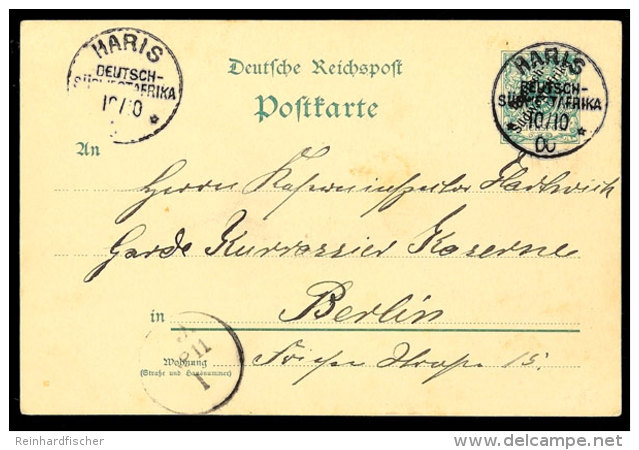 HARIS
DEUTSCH-
SÜDWESTAFRIKA
10/10
Deutsche Reichspost
Postkarte
HARIS
DEUTSCH-
SÜDWESTAFRIKA
10/10
00
An
Herrn Kaserneninspektor
Garde Kürrassier Kaserne
in Berlin
Wohnung
(Straße und Hausnummer)
15.
11
1
Reinhardfischer
www.delcampe.net